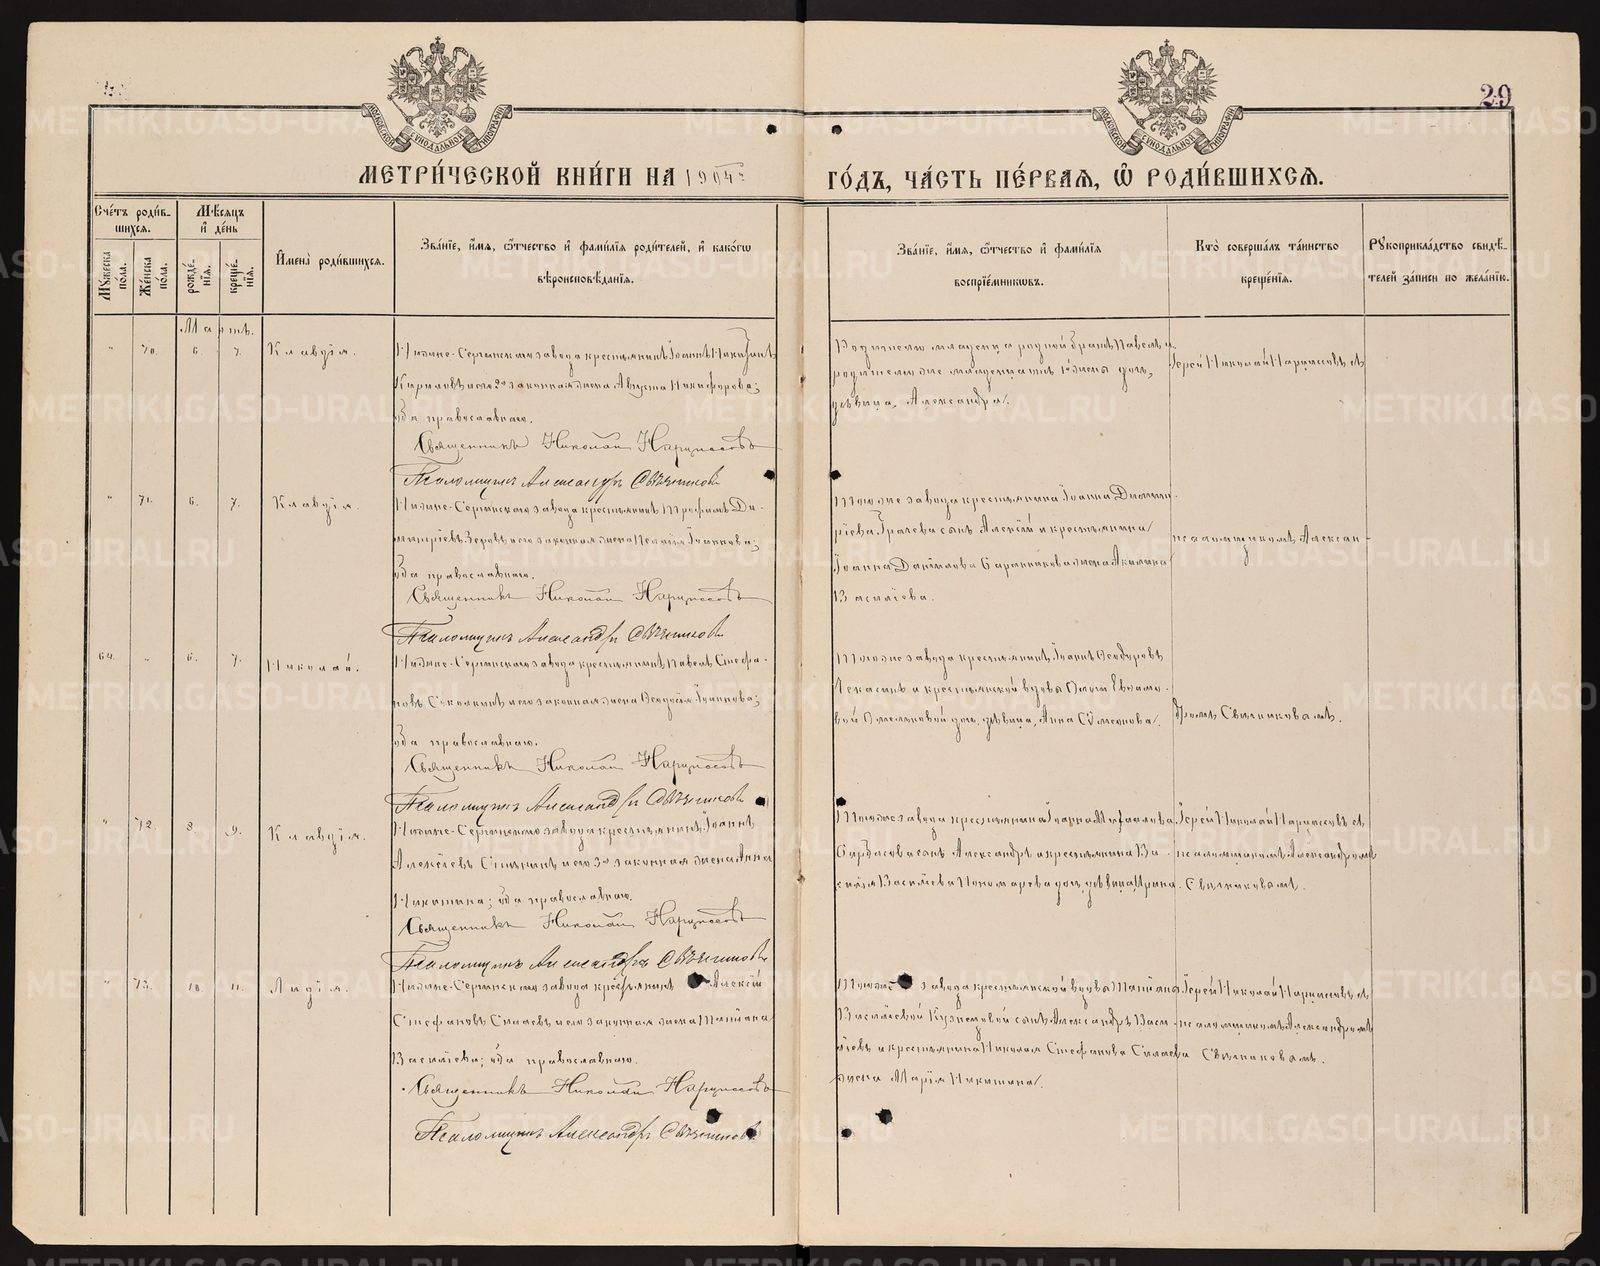 29
МОСКОВСКОЙ СѴНОДАЛЬНОЙ ТИПОГРАФІИ
МОСКОВСКОЙ СѴНОДАЛЬНОЙ ТИПОГРАФІИ
МЕТРИ́ЧЕСКОЙ КНИ́ГИ НА 1904й
ГО́ДЪ, ЧА́СТЬ ПЕ́РВАѦ, Ѡ РОДИ́ВШИХСѦ.
Сче́тъ роди́в-
шихся.
Мѣ́сяцъ
и҆ де́нь
Мꙋ́жеска по́ла.
Же́нска по́ла.
рожде́-
нїя.
креще́-
нїя.
И҆мена̀ роди́вшихся.
Зва́нїе, и҆́мя, ѻ҆́тчество и҆ фамі́лїя роди́телей, и҆ како́гѡ
вѣроисповѣ́данїя.
Зва́нїе, и҆́мя, ѻ҆́тчество и҆ фамі́лїя
воспрїе́мникѡвъ.
Кто̀ соверша́лъ та́инство
креще́нїя.
Рꙋкоприкла́дство свидѣ́-
телей за́писи по жела́нїю.
Мартъ.
" 70. 6. 7. Клавдія.
Нижне-Сергинскаго завода крестьянинъ Іоаннъ Никитинъ
Кириловъ и его 2я законная жена Августа Никифорова;
оба православные.
Священникъ Николай Нарциссовъ
Псаломщикъ Александръ Свѣчниковъ
Родителю младенца родной братъ Павелъ и
родителю же младенца отъ 1й жены дочь,
дѣвица, Александра.
Іерей Николай Нарциссовъ съ
" 71. 6. 7. Клавдія.
Нижне-Сергинскаго завода крестьянинъ Трофимъ Ди-
митріевъ и его законная жена Пелагія Іоаннова;
оба православные.
Священникъ Николай Нарциссовъ
Псаломщикъ Александръ Свѣчниковъ
Тогоже завода крестьянина Іоанна Димит-
ріева сынъ Алексій и крестьянина
Іоанна Даніилова жена Акилина
Василіева.
псаломщикомъ Алексан-
64. " 6. 7. Николай.
Нижне-Сергинскаго завода крестьянинъ Павелъ Стефа-
новъ и его законная жена Ѳеодосія Іоаннова;
оба православные.
Священникъ Николай Нарциссовъ
Псаломщикъ Александръ Свѣчниковъ
Тогоже завода крестьянинъ Іоаннъ Ѳеодоровъ
и крестьянской вдовы
дочь, дѣвица, Анна Сѵмеонова.
дромъ Свѣчниковымъ.
" 72. 8. 9. Клавдія.
Нижне-Сергинскаго завода крестьянинъ Іоаннъ
Алексіевъ и его 3я законная жена Анна
Никитина; оба православные.
Священникъ Николай Нарциссовъ
Псаломщикъ Александръ Свѣчниковъ
Тогоже завода крестьянина Іоанна Михаилова
сынъ Александръ и крестьянина Ва-
силія Василіева Пономарева дочь, дѣвица, Ирина.
Іерей Николай Нарциссовъ съ
псаломщикомъ Александромъ
Свѣчниковымъ.
" 73. 10. 11. Лидія.
Нижне-Сергинскаго завода крестьянинъ Алексій
Стефановъ Силаевъ и его законная жена Татіана
Василіева; оба православные.
Священникъ Николай Нарциссовъ
Псаломщикъ Александръ Свѣчниковъ
Тогоже завода крестьянской вдовы Татіаны
Василіевой Кузнецовой сынъ Александръ Васи-
ліевъ и крестьянина Николая Стефанова Силаева
жена Марія Никитина.
Іерей Николай Нарциссовъ съ
псаломщикомъ Александромъ
Свѣчниковымъ.
METRIKI.GASO-URAL.RU